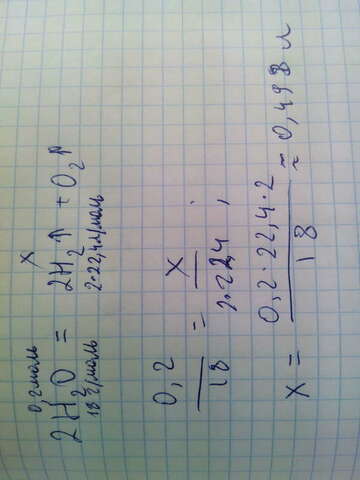 0,2 моль X
2H₂O = 2H₂↑ + O₂↑
18 г/моль 2·22,4 л/моль
0,2 / 18 = X / 2·22,4 ,
X = 0,2·22,4·2 / 18 ≈ 0,498 л